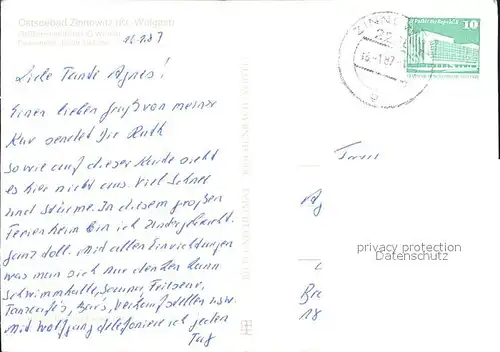 Ostseebad Zinnowitz Kr. Wolgast
16.1.87
Liebe Tante Agnes!
Einen lieben Gruß von meiner
Kur sendet Dir Ruth
So wie auf dieser Karte sieht
es hier nicht aus. Viel Schnee
und Stürme. In diesem großen
Ferienheim bin ich untergebracht.
Ganz doll. Mit allen Einrichtungen
was man sich nur denken kann.
Schwimmhalle, Sauna, Friseur,
Tanzcafe's, Bar's, Verkaufsstellen usw.
Mit Wolfgang telefoniere ich jeden
Tag
ZINNO
22
16.-1.87
10
privacy protection
Datenschutz
18